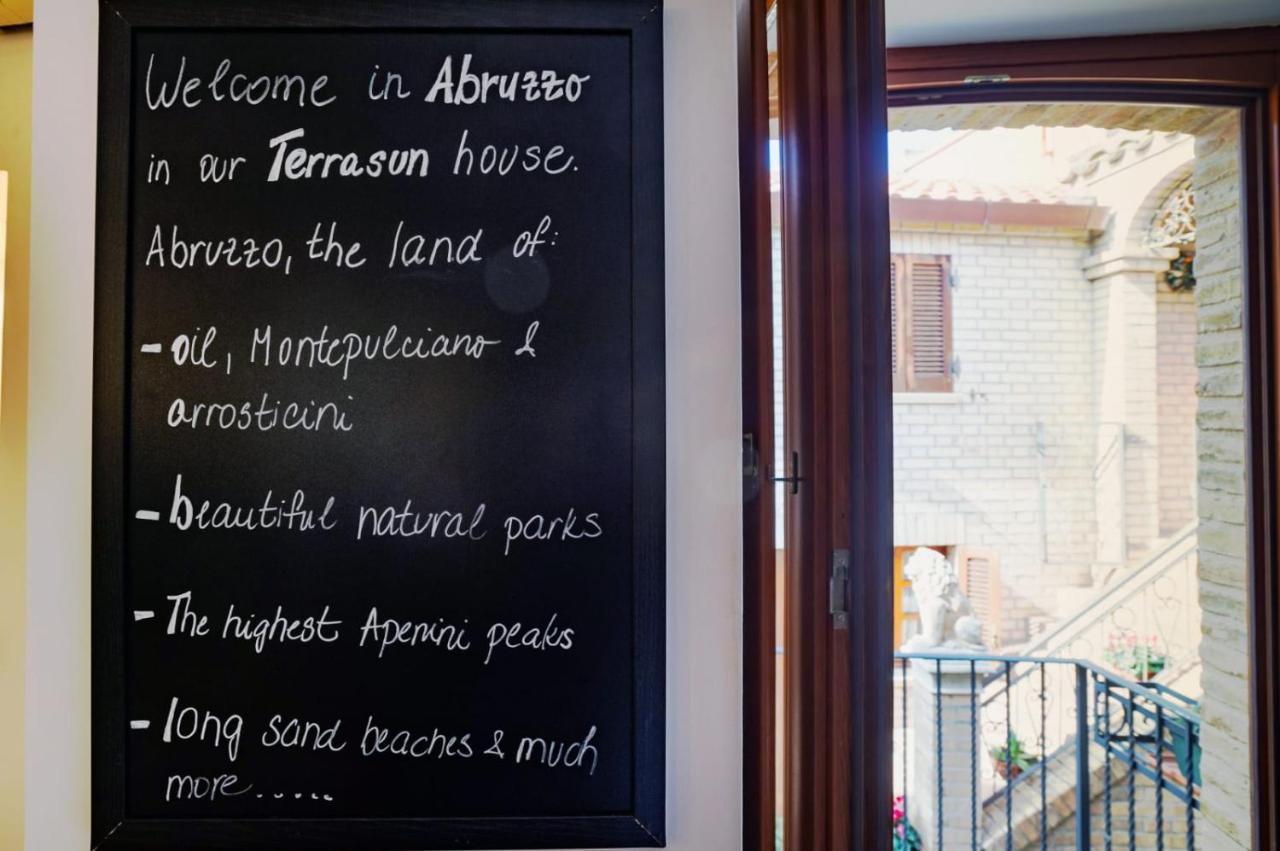 Welcome in Abruzzo
in our Terrasun house.
Abruzzo, the land of:
- oil, Montepulciano &
arrosticini
- beautiful natural parks
- The highest Apenini peaks
- long sand beaches & much
more.....